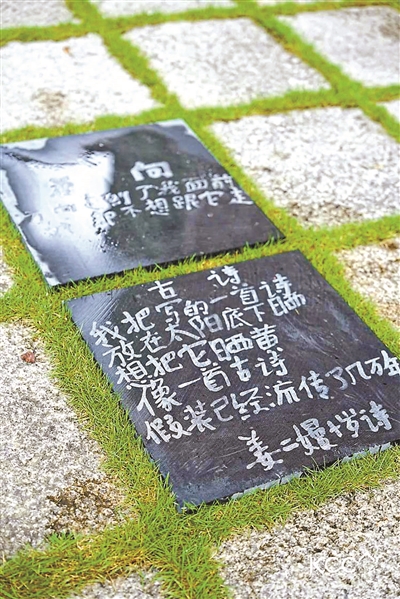 向
到了我面前
却不想跟它走
古诗
我把写的一首诗
放在太阳底下晒
想把它晒黄
像一首古诗
假装已经流传了几万年
姜二嫚七岁诗